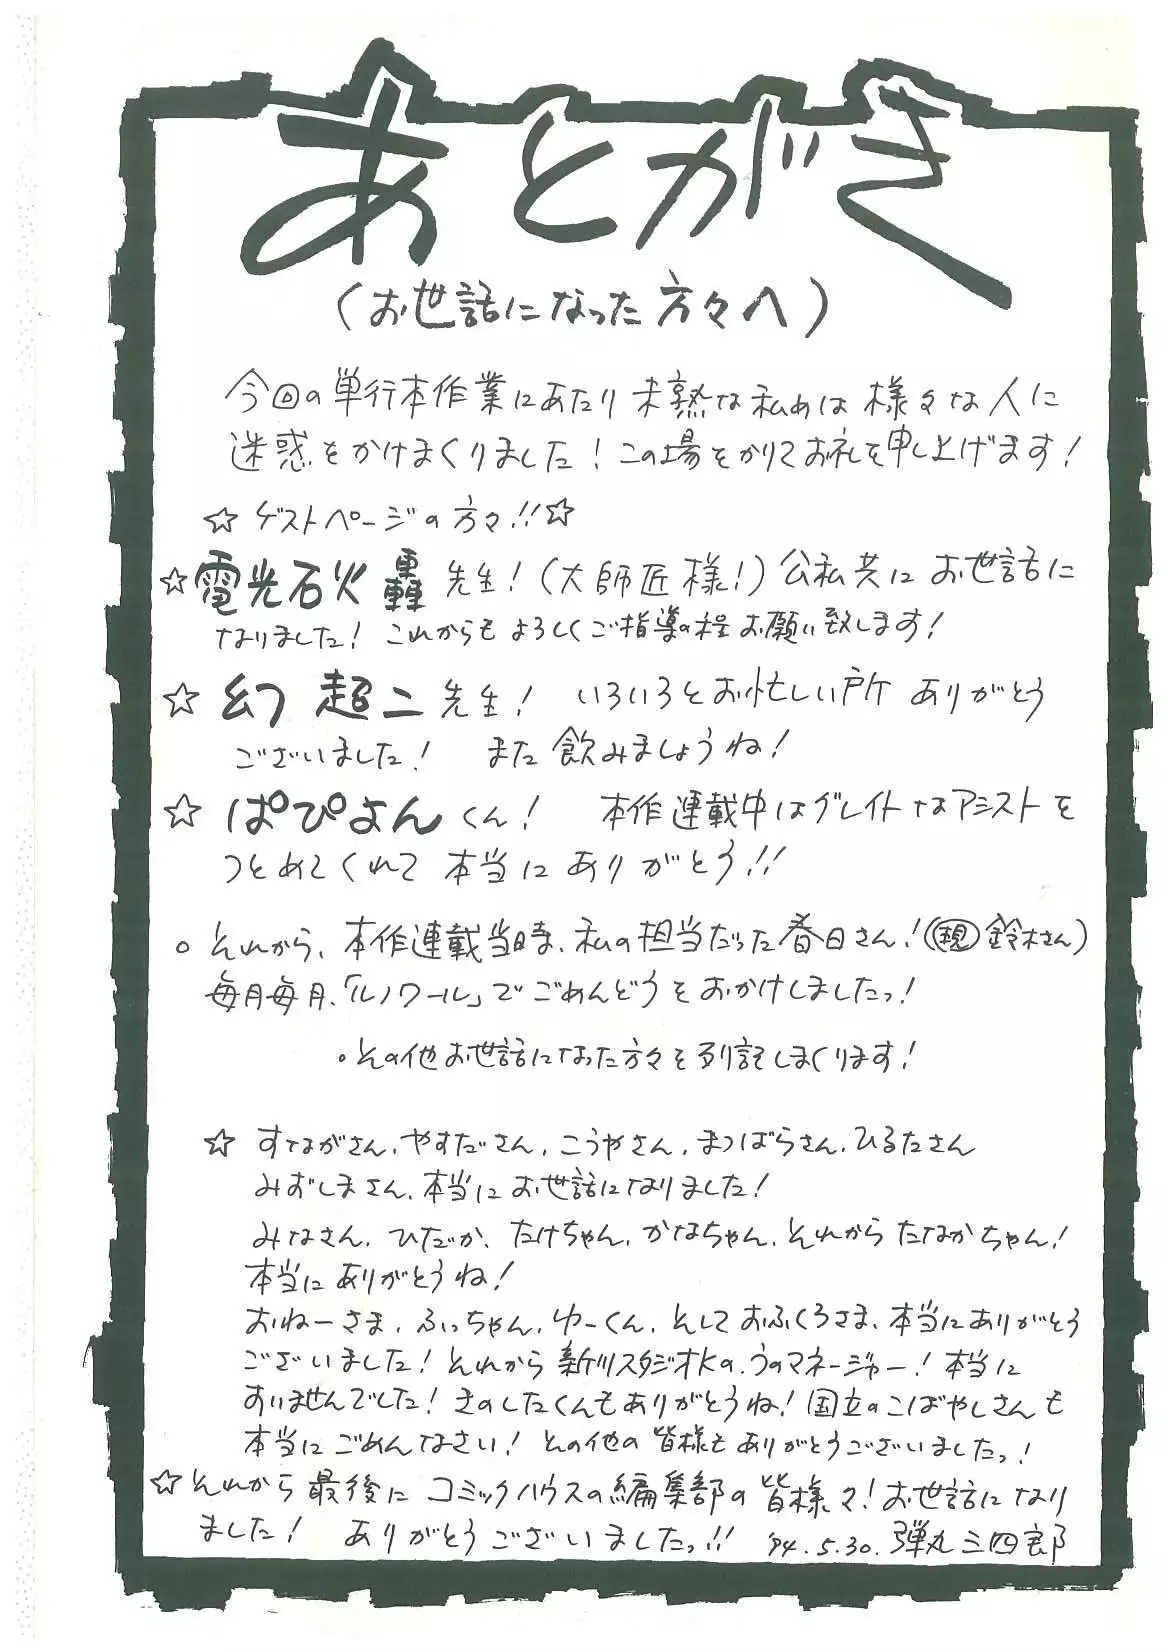 あとがき
(お世話になった方々へ)
今回の単行本作業にあたり未熟な私めは様々な人に
迷惑をかけまくりました!この場をかりてお礼を申し上げます!
☆ゲストページの方々!!☆
☆電光石火 轟 先生!(大師匠様!)公私共にお世話に
なりました!これからもよろしくご指導の程お願い致します!
☆幻 超二 先生! いろいろとお忙しい所 ありがとう
ございました! また飲みましょうね!
☆ぱぴよん くん! 本作連載中はグレイトなアシストを
つとめてくれて 本当にありがとう!!
○それから、本作連載当時、私の担当だった春日さん!(現 鈴木さん)
毎月毎月、「ルノワール」でごめんどうをおかけしましたっ!
○その他お世話になった方々を列記しまくります!
☆すながさん、やすださん、こうやさん、まつばらさん、ひるたさん
みずしまさん、本当にお世話になりました!
みなさん、ひだか、たけちゃん、かなちゃん、それからたなかちゃん!
本当にありがとうね!
おねーさま、ふっちゃん、ゆーくん、そしておふくろさま、本当にありがとう
ございました!それから 新川スタジオKの、うのマネージャー!本当に
すいませんでした!きのしたくんもありがとうね!国立のこばやしさんも
本当にごめんなさい!その他の皆様もありがとうございましたっ!
☆それから最後に コミックハウスの編集部の皆様々!お世話になり
ました! ありがとうございましたっ!! '94.5.30. 弾丸三四郎